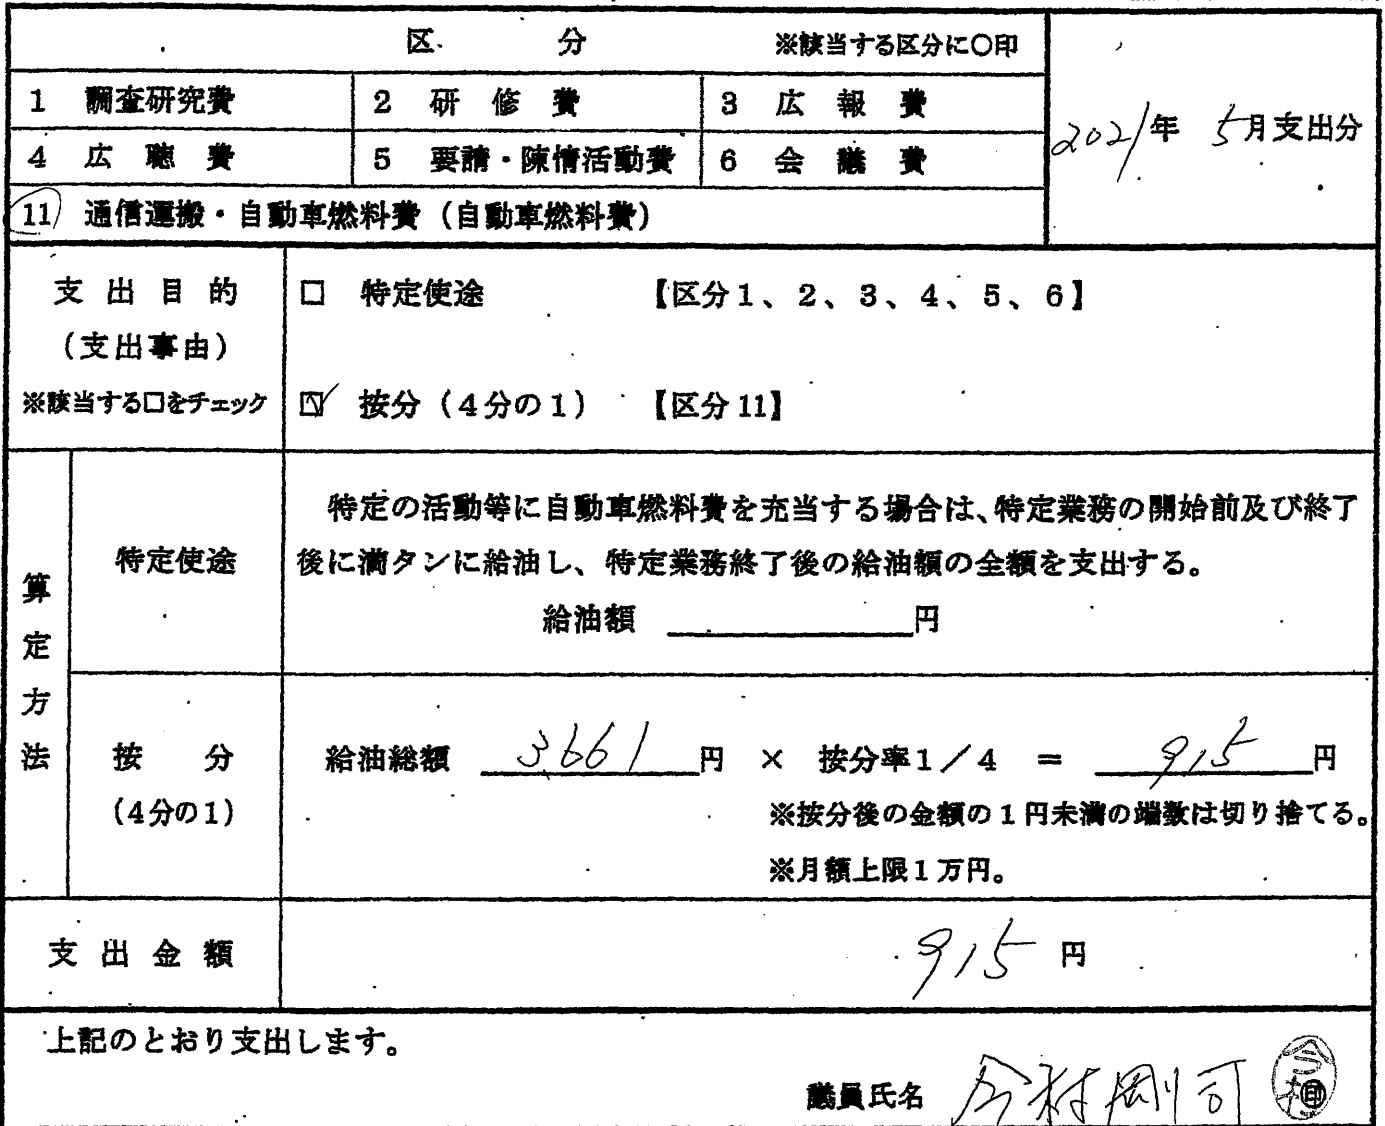 区 分 ※該当する区分に○印
1 調査研究費 2 研修費 3 広報費
2021年 5月支出分
4 広聴費 5 要請・陳情活動費 6 会議費
11 通信運搬・自動車燃料費（自動車燃料費）
支出目的
（支出事由）
※該当する□をチェック
□ 特定使途 【区分1、2、3、4、5、6】
☑ 按分（4分の1） 【区分11】
算定方法
特定使途
特定の活動等に自動車燃料費を充当する場合は、特定業務の開始前及び終了
後に満タンに給油し、特定業務終了後の給油額の全額を支出する。
給油額 ＿＿＿＿円
按分
（4分の1）
給油総額 3,661 円 × 按分率1／4 ＝ 915 円
※按分後の金額の1円未満の端数は切り捨てる。
※月額上限1万円。
支出金額 915 円
上記のとおり支出します。
議員氏名 今村剛司 印
今村